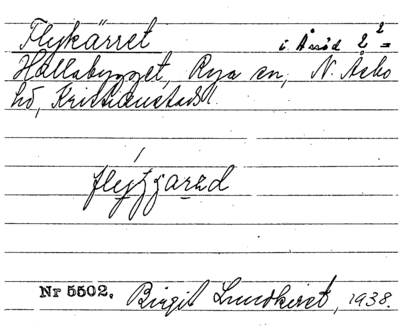 Flykärret i Årröd 2²=
Hallabygget, Rya sn, N. Åsbo
hd, Kristianstads l.
flytjarad
Nr 5502. Birgit Lundkvist, 1938.